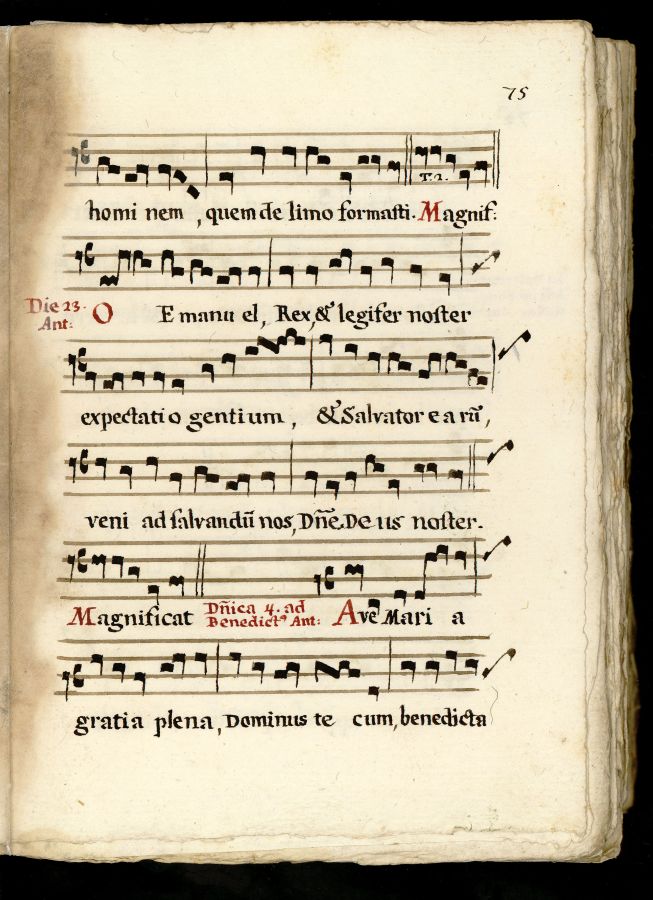 75
T.2.
homi nem, quem de limo formasti. Magnif:
Die 23.
Ant:
O Emanu el, Rex, & legifer noster
expectati o gentium, & Salvator e a rũ,
veni ad salvandũ nos, Dñe De us noster.
Magnificat Dñica 4. ad
Benedict⁹ Ant: Ave Mari a
gratia plena, Dominus te cum, benedicta